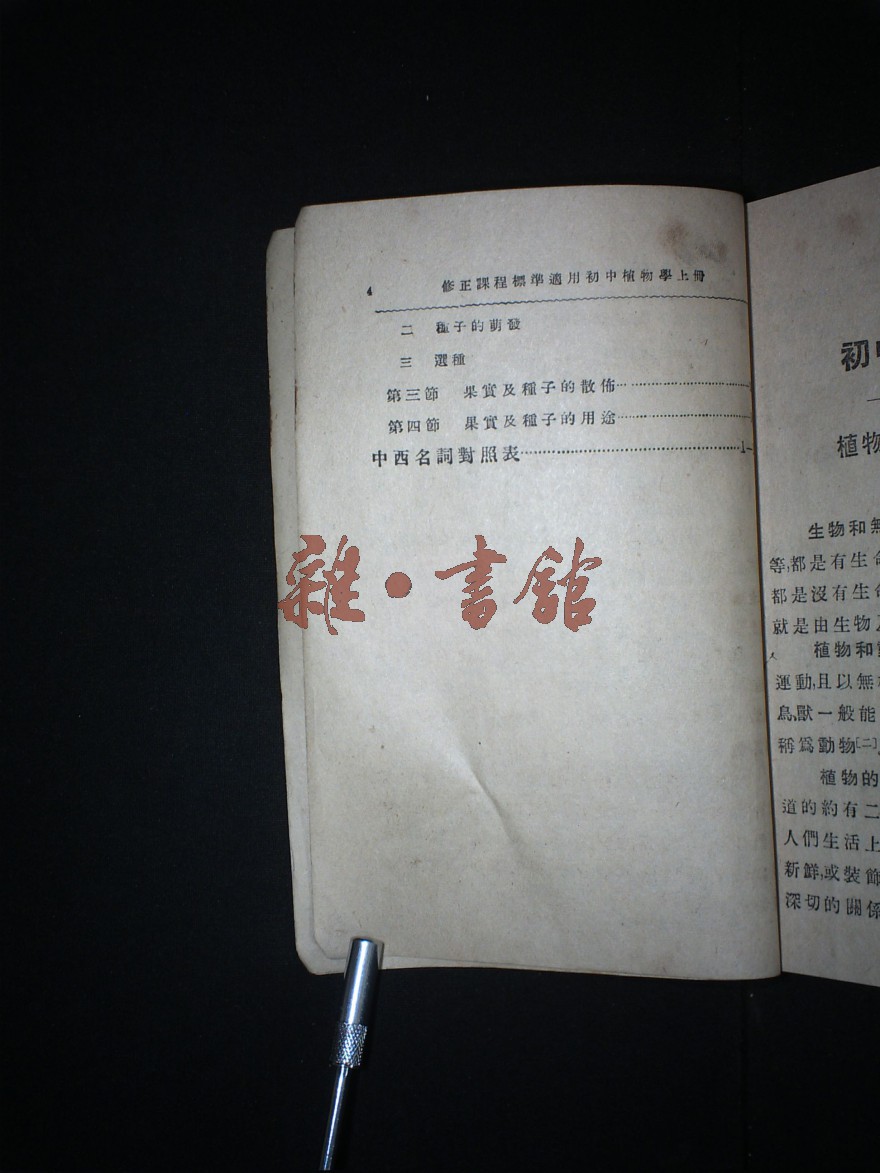 4 修正課程標準適用初中植物學上冊
二 種子的萌發
三 選種
第三節 果實及種子的散佈
第四節 果實及種子的用途
中西名詞對照表 1—
雜·書館
初中
植物
生物和無
等,都是有生命
都是沒有生命
就是由生物及
植物和
運動,且以無
鳥,獸一般能
稱爲動物[二]
植物的
道的約有二
人們生活上
新鮮,或裝飾
深切的關係